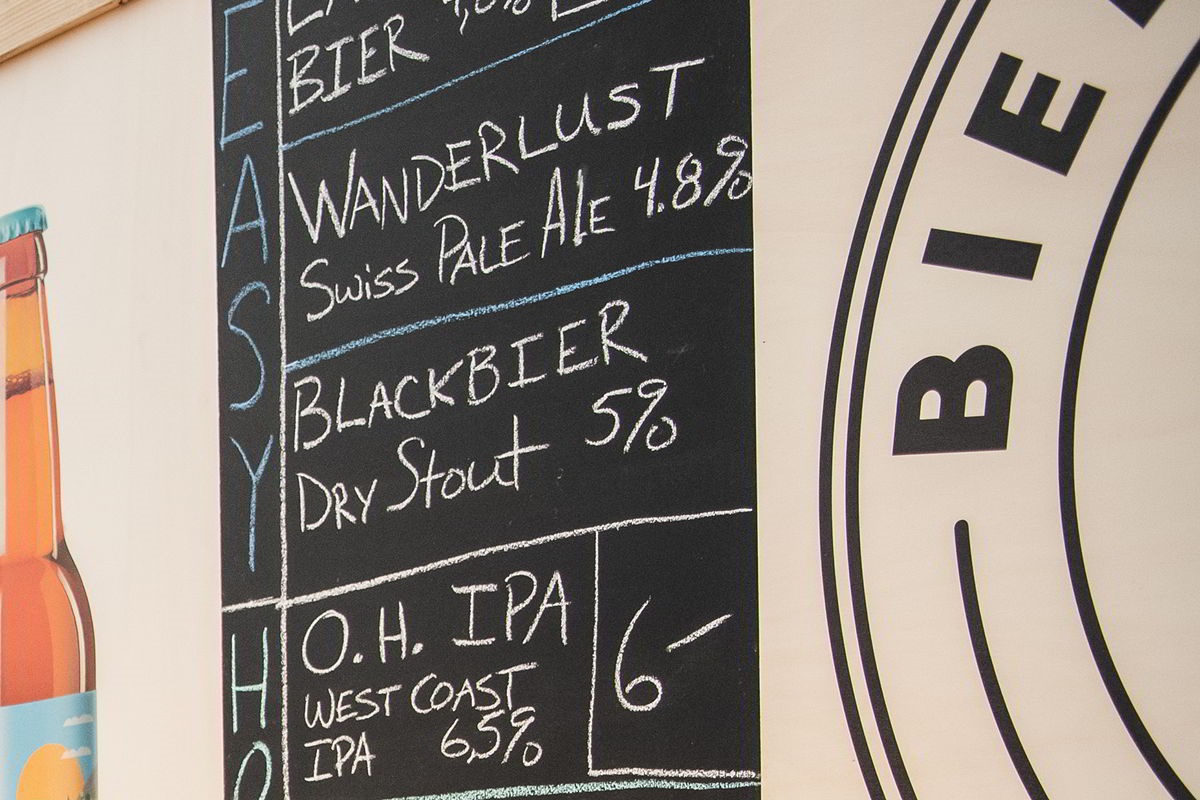 EASY
BIER
WANDERLUST
Swiss PALE ALE 4.8%
BLACKBIER
DRY Stout 5%
O.H. IPA
WEST COAST
IPA 6,5%
6–
HO
BIE